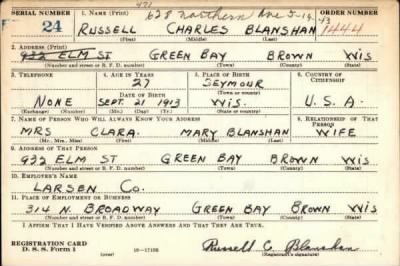 471
SERIAL NUMBER 1. NAME (Print) 628 Northern Ave 5-14-43 ORDER NUMBER
24 RUSSELL CHARLES BLANSHAN 1444
(First) (Middle) (Last)
2. ADDRESS (Print)
932 ELM ST GREEN BAY BROWN WIS
(Number and street or R. F. D. number) (Town) (County) (State)
3. TELEPHONE 4. AGE IN YEARS 5. PLACE OF BIRTH 6. COUNTRY OF CITIZENSHIP
27 SEYMOUR
DATE OF BIRTH (Town or county)
NONE SEPT. 21 1913 WIS. U. S. A.
(Exchange) (Number) (Mo.) (Day) (Yr.) (State or country)
7. NAME OF PERSON WHO WILL ALWAYS KNOW YOUR ADDRESS 8. RELATIONSHIP OF THAT PERSON
MRS CLARA MARY BLANSHAN WIFE
(Mr., Mrs., Miss) (First) (Middle) (Last)
9. ADDRESS OF THAT PERSON
932 ELM ST GREEN BAY BROWN WIS
(Number and street or R. F. D. number) (Town) (County) (State)
10. EMPLOYER'S NAME
LARSEN CO.
11. PLACE OF EMPLOYMENT OR BUSINESS
314 N. BROADWAY GREEN BAY BROWN WIS
(Number and street or R. F. D. number) (Town) (County) (State)
I AFFIRM THAT I HAVE VERIFIED ABOVE ANSWERS AND THAT THEY ARE TRUE.
REGISTRATION CARD
D. S. S. Form 1 (over) 16-17105 Russell C Blanshan
(Registrant's signature)